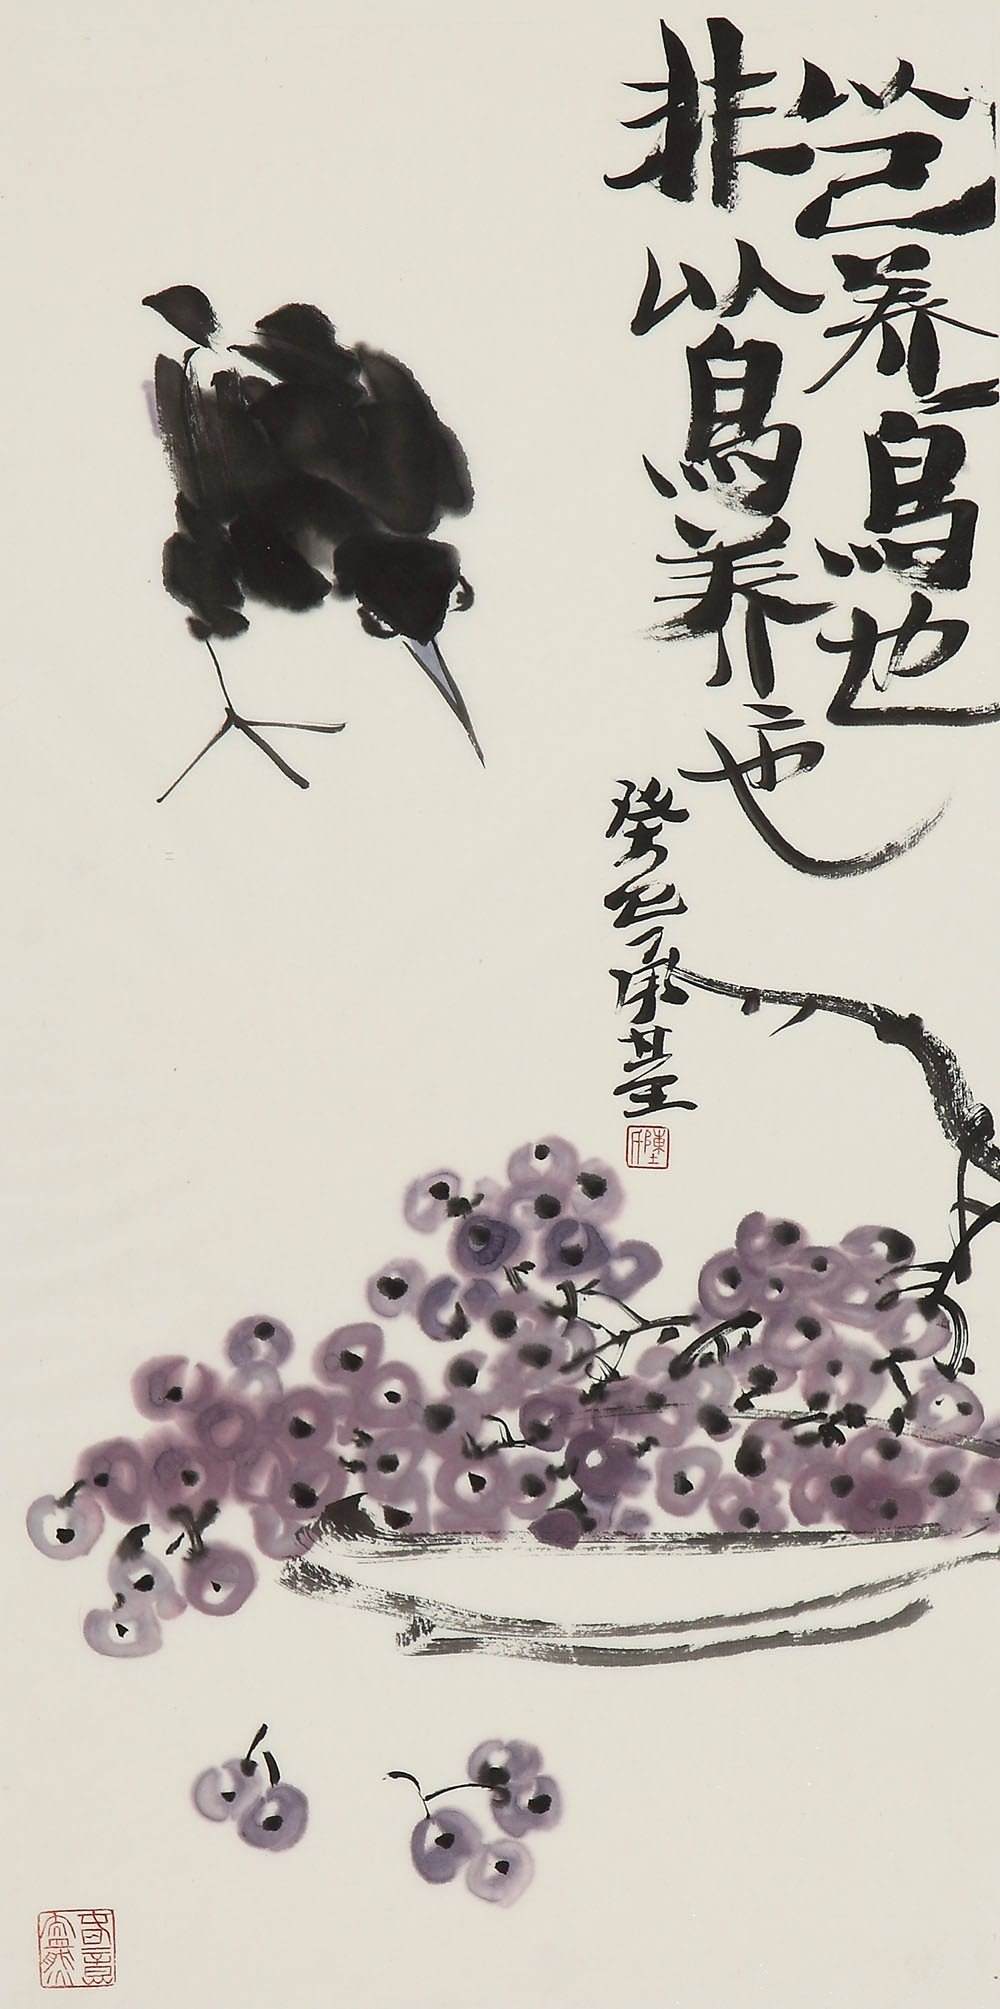 以己养鸟也
非以鸟养也
癸巳承基
陳